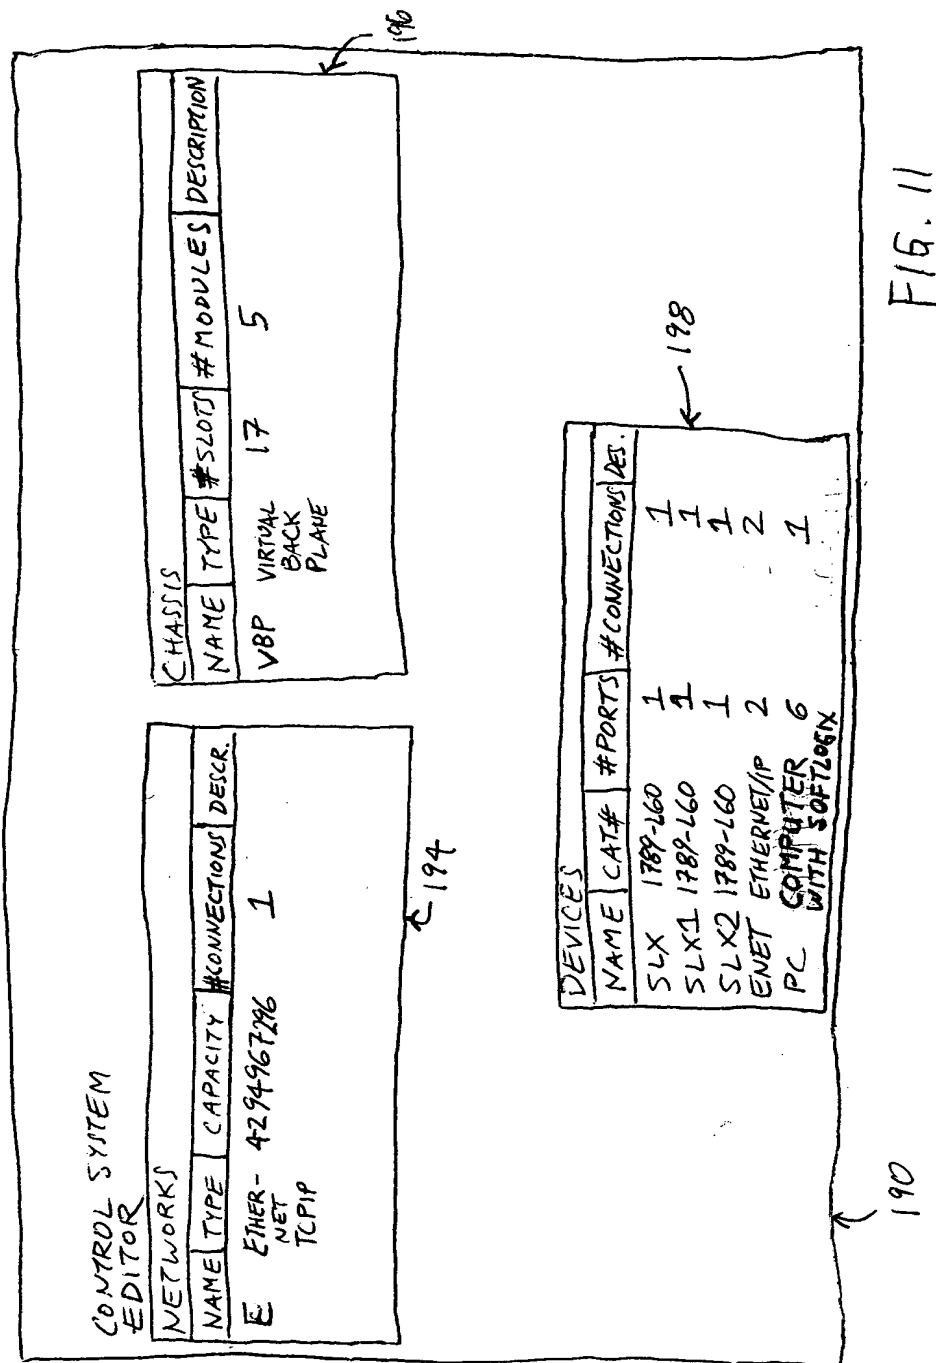 CONTROL SYSTEM
EDITOR
NETWORKS
NAME TYPE CAPACITY #CONNECTIONS DESCR.
E ETHER- 4294967296 1
NET
TCPIP
194
CHASSIS
NAME TYPE #SLOTS #MODULES DESCRIPTION
VBP VIRTUAL 17 5
BACK
PLANE
196
DEVICES
NAME CAT# #PORTS #CONNECTIONS DES.
SLX 1789-L60 1 1
SLX1 1789-L60 1 1
SLX2 1789-L60 1 1
ENET ETHERNET/IP 2 2
PC COMPUTER 6 1
WITH SOFTLOGIX
198
190
FIG. 11